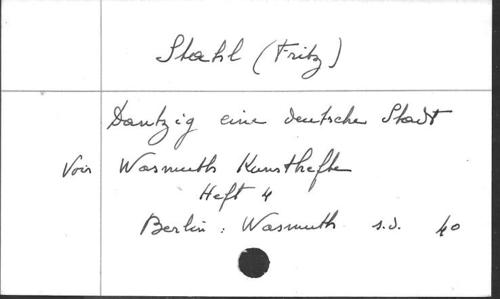 Stahl (Fritz)
Dantzig eine deutsche Stadt
Voir Wasmuths Kunsthefte
Heft 4
Berlin : Wasmuth s.d. 40